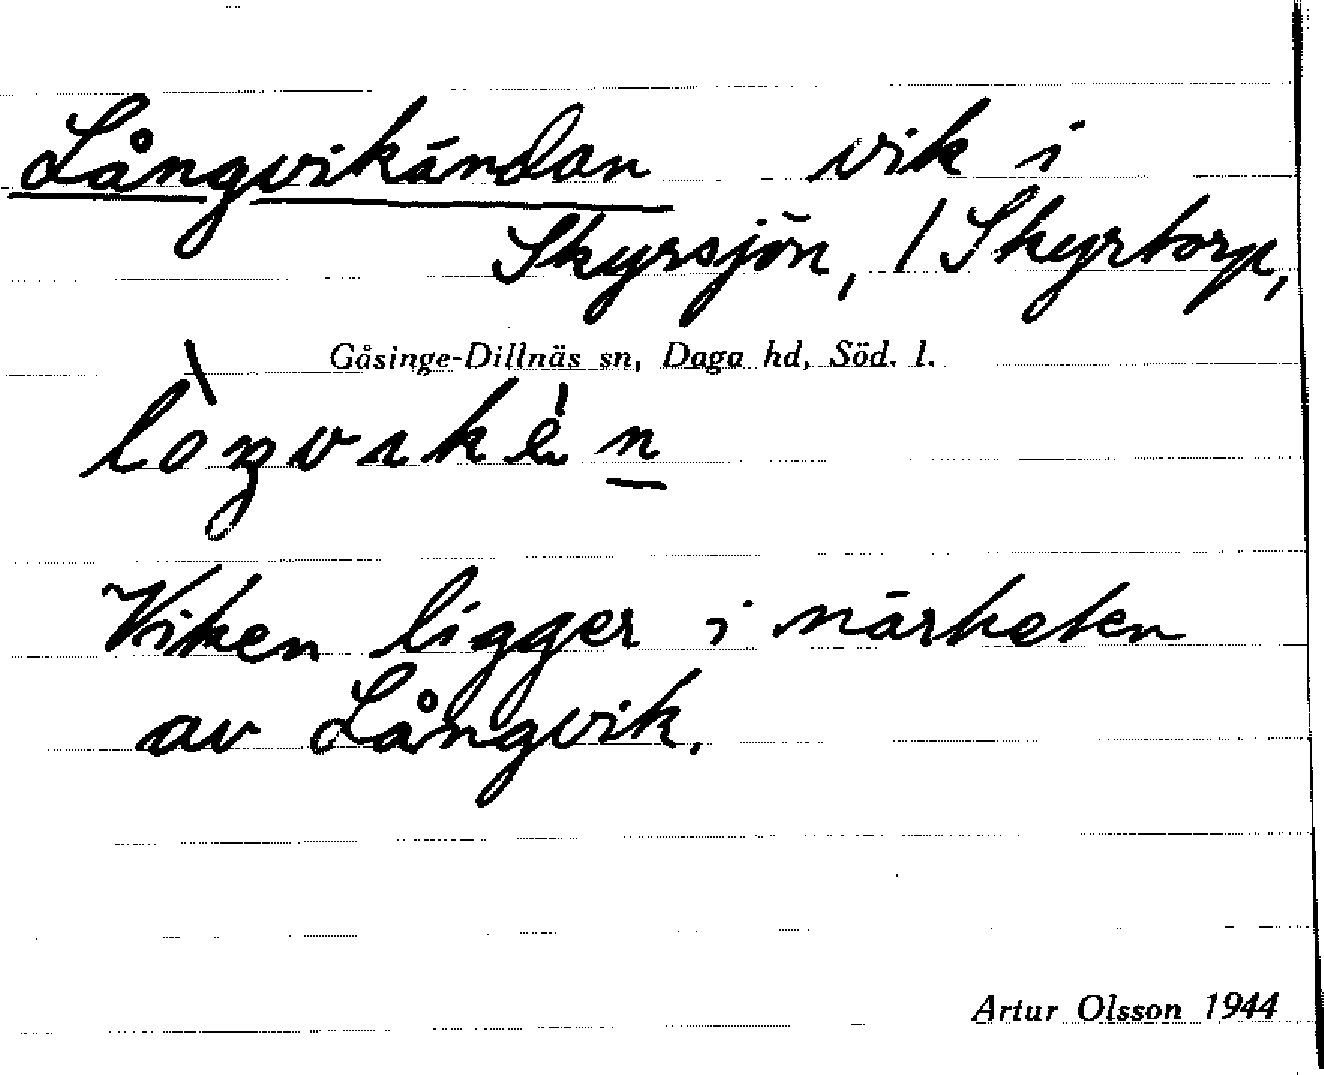 Långvikändan vik i
Skyrsjön, / Skyrtorp,
Gåsinge-Dillnäs sn, Daga hd, Söd. l.
Viken ligger i närheten
av Långvik.
Artur Olsson 1944